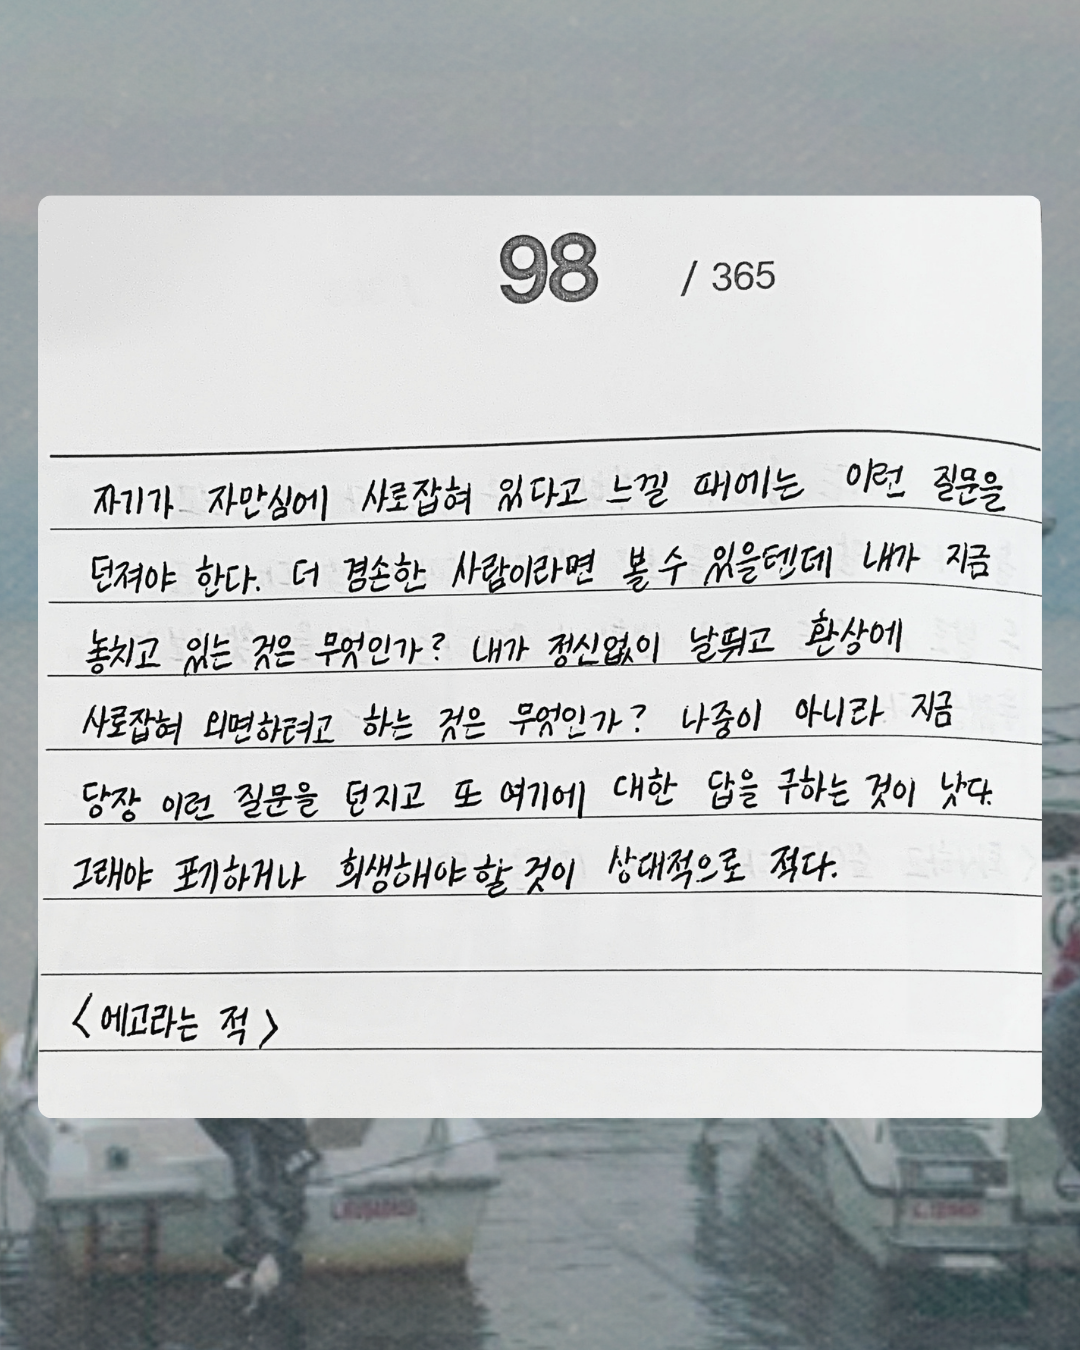 98 / 365
자기가 자만심에 사로잡혀 있다고 느낄 때에는 이런 질문을
던져야 한다. 더 겸손한 사람이라면 볼 수 있을텐데 내가 지금
놓치고 있는 것은 무엇인가? 내가 정신없이 날뛰고 환상에
사로잡혀 외면하려고 하는 것은 무엇인가? 나중이 아니라 지금
당장 이런 질문을 던지고 또 여기에 대한 답을 구하는 것이 낫다.
그래야 포기하거나 희생해야 할 것이 상대적으로 적다.
<에고라는 적>